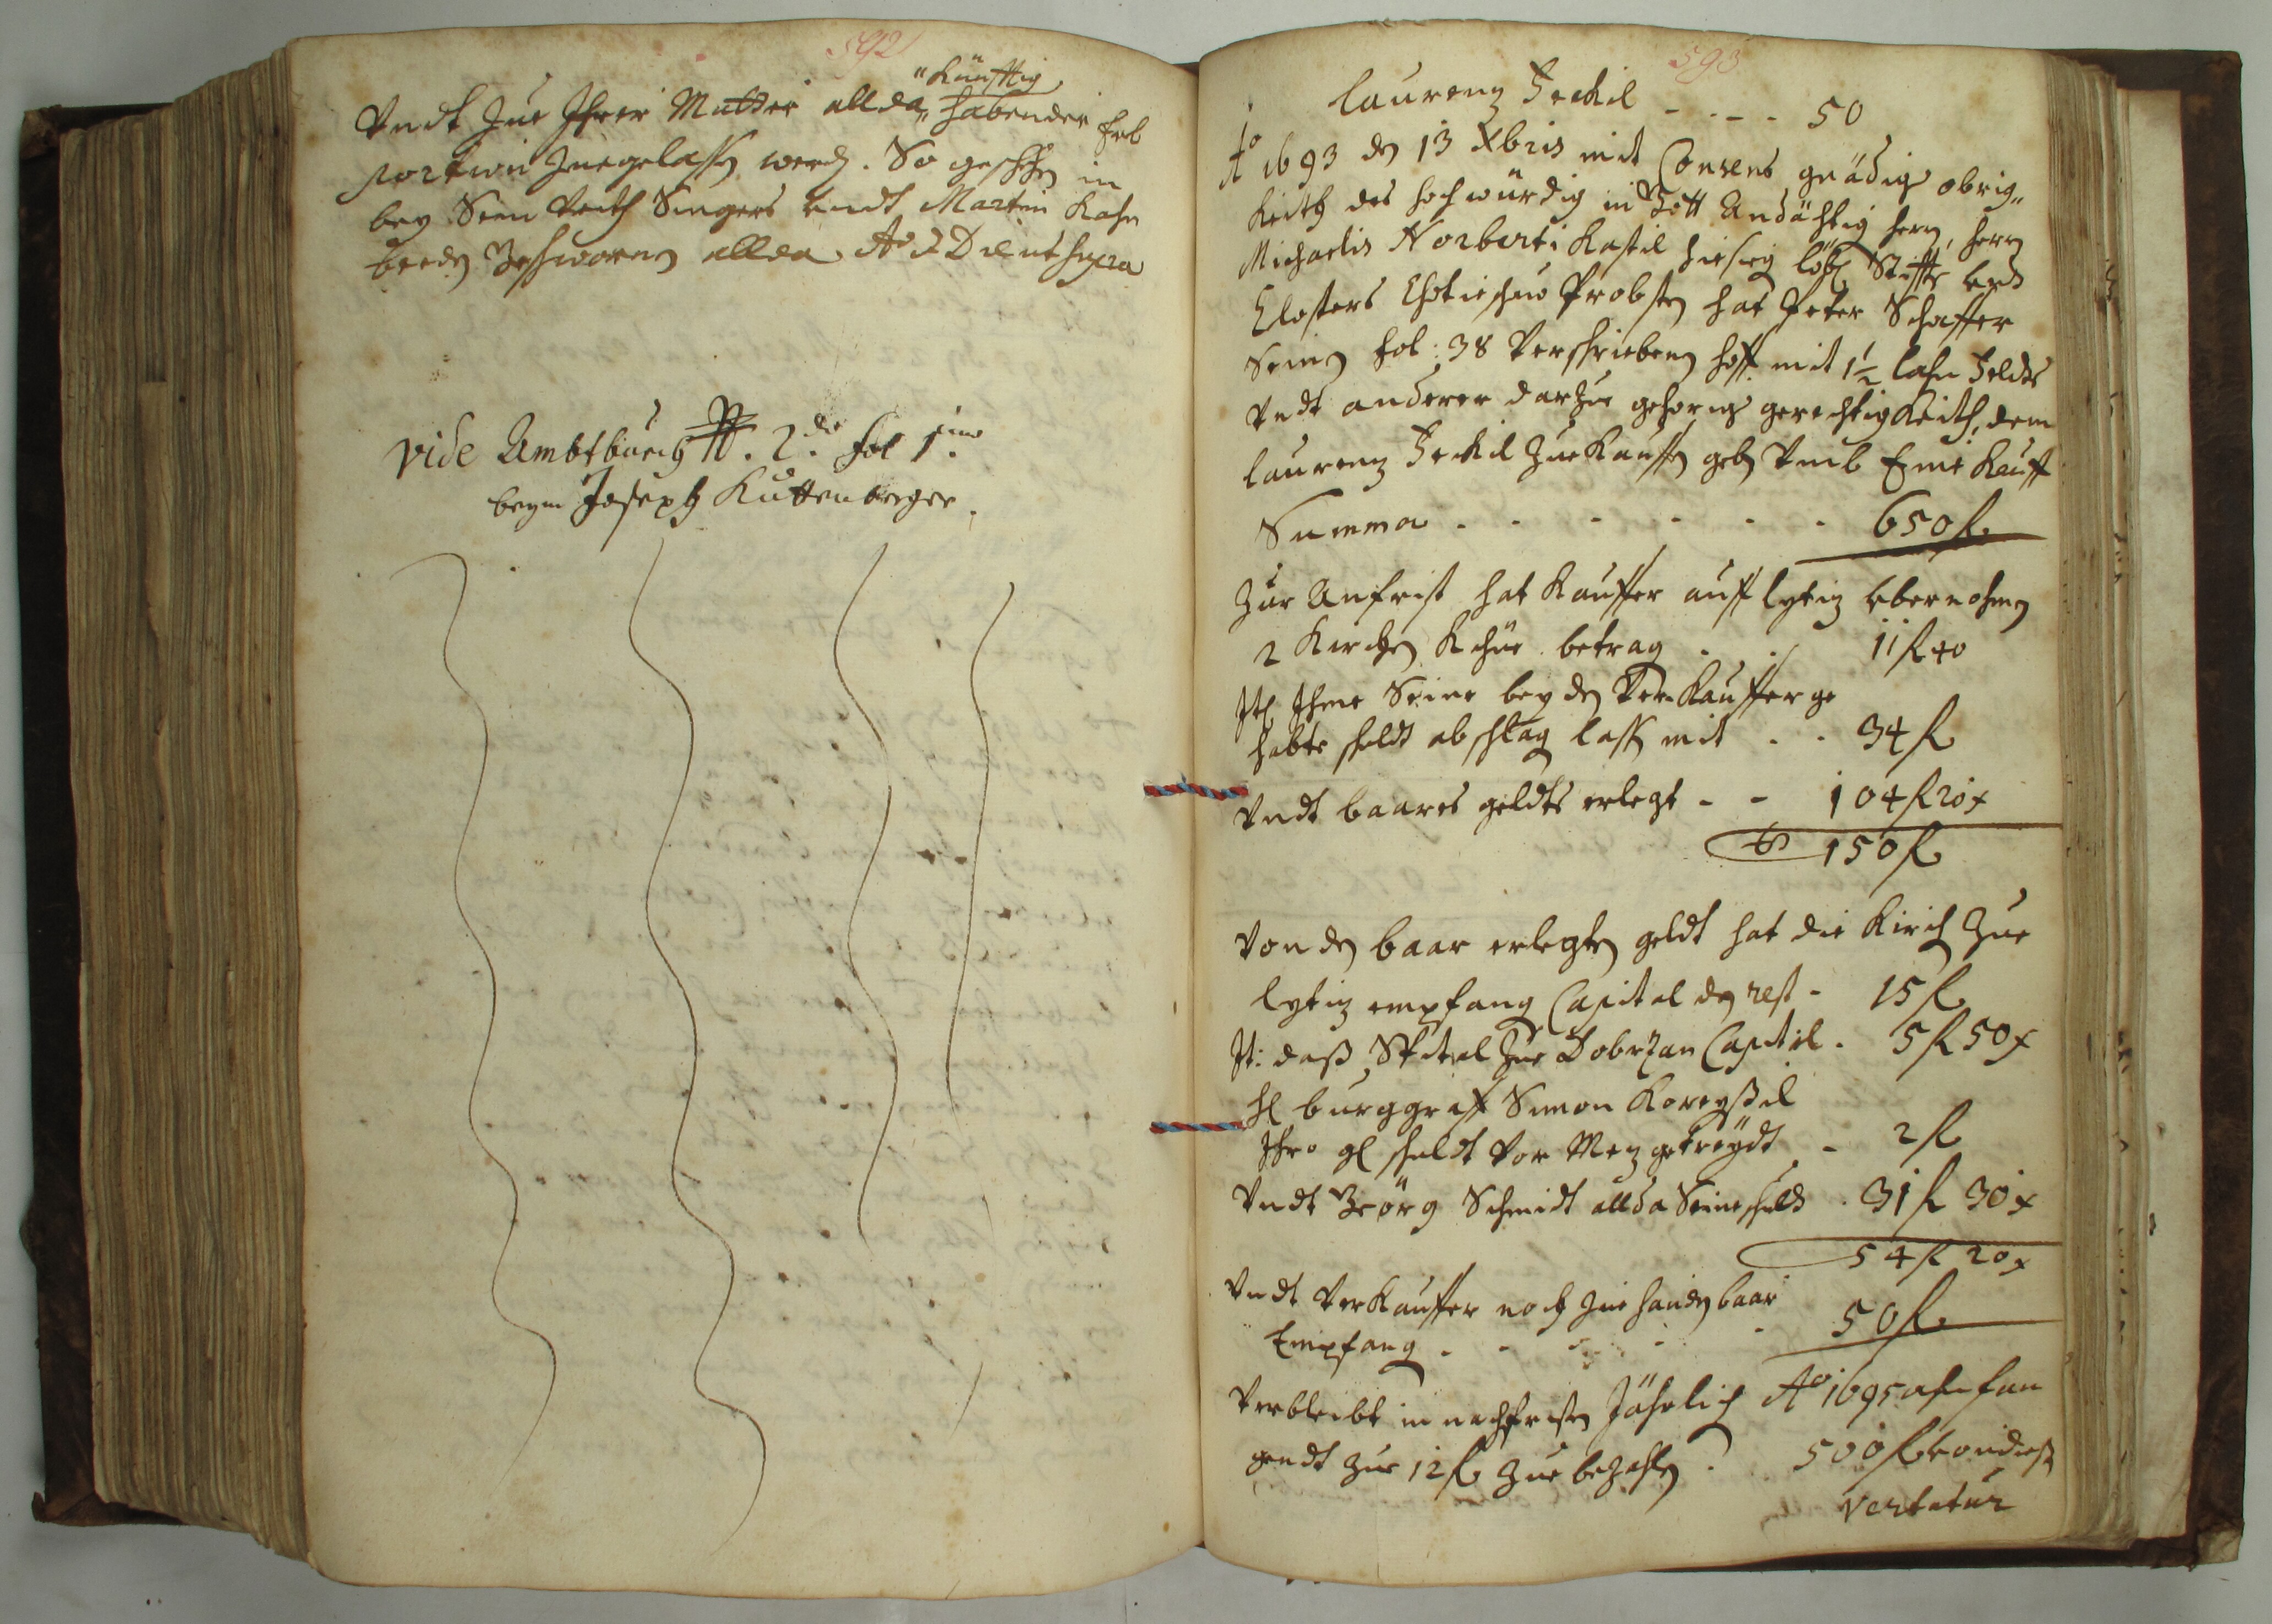 592
"Künfftig
Vndt Zue Ihrer Mutter allda " habender Erb
portion Zuegelassen werden. So geschehen in
bey Sein Veith Singers vndt Martin Kahn
beeden Geschworen allda Ao & Die ut supra
vide Ambtbuech 2do fol 1mo
beym Joseph Kuttenberger.
593
Laurenz Jeckil - - - - 50
Ao 1693 den 13 Xbris mit Consens gnädiger obrig„
Keith des hochwürdig in Gott Andächtig herrn, herrn
Michaelis Norberti Kastil hiesig löbl Stiffts vndt
Closters Chotieschau Probsten hat Peter Schaffer
Seinen fol: 38 Verschriebenen hoff mit 1½ lahn Feldes
Vndt anderer darzue gehorige gerechtigkeith, dem
Laurenz Jeckil Zue Kauffen geben Vmb Eine Kauff
Summa - - - - - - 650 fl.
Zur Anfrist hat Kauffer auff Lytiz vbernohmen
2 Kirchen Kühe betrag . . 11 fl 40
Itl Ihme Seine bey den Verkauffer ge
habte schuldt abschlag lassen mit . . 34 fl
Vndt baares geldts erlegt - - 104 fl 20 x
150 fl
Von den baar erlegten geldt hat die Kirch Zue
Lytiz empfang Capital den rest - 15 fl
It: dass Spital Zue Dobrzan Capital . 5 fl 50 x
Hl burggraff Simon Koreyssil
Ihro gl schuldt vor Menz getreydt - 2 fl
Vndt Georg Schmidt allda Seine schuld . 31 fl 30 x
54 fl 20 x
Vndt Verkauffer noch zue handen baar
Empfang . - - - - 50 fl.
Verbleibt in nachfristen Jährlich Ao 1695 ahnfan
gendt Zue 12 fl Zue bezahlen . 500 fl von diesen
Vertatur